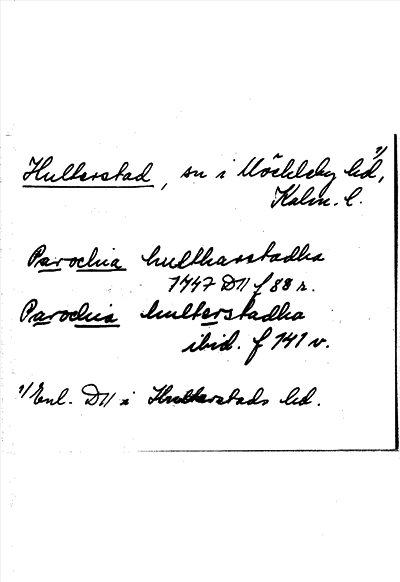 Hulterstad, sn i Möckleby hd, 1)
Kalm. l.
Parochia hultharstadha
1447 D11 f 88 r.
Parochia hulterstadha
ibid. f 141 v.
1) Enl. D11 i Hulterstads hd.